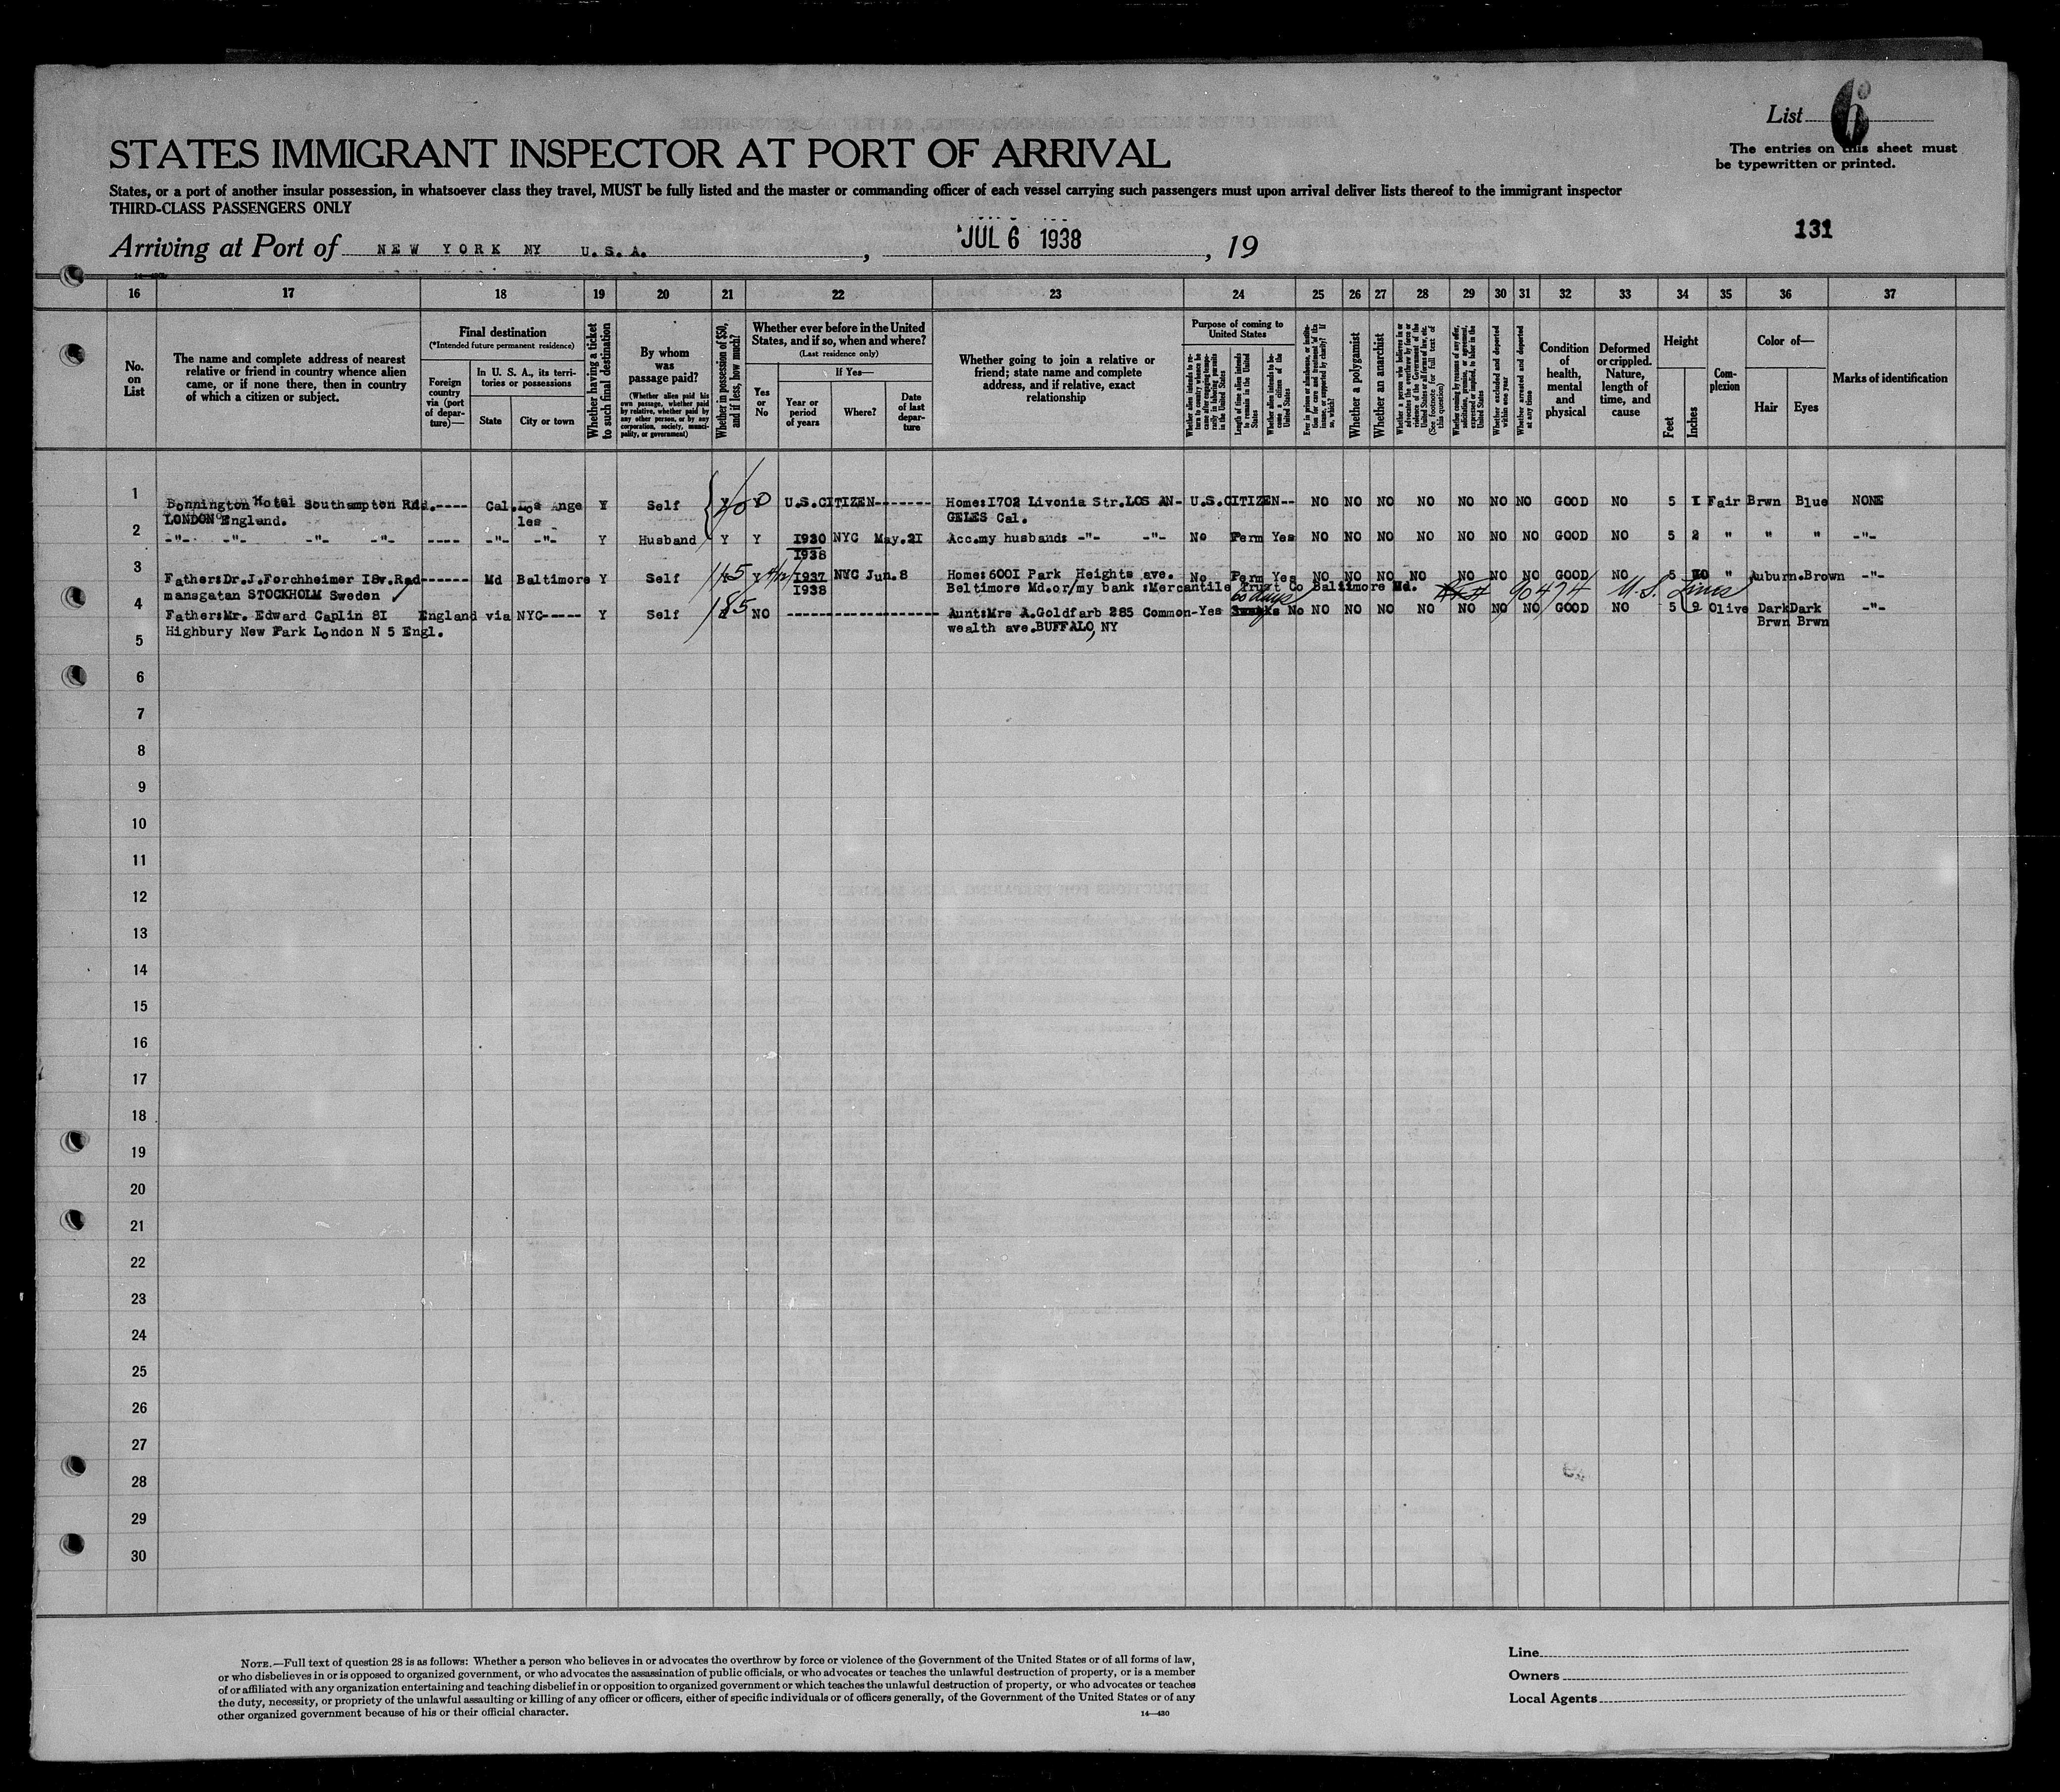 List 6
The entries on this sheet must
be typewritten or printed.
STATES IMMIGRANT INSPECTOR AT PORT OF ARRIVAL
States, or a port of another insular possession, in whatsoever class they travel, MUST be fully listed and the master or commanding officer of each vessel carrying such passengers must upon arrival deliver lists thereof to the immigrant inspector
THIRD-CLASS PASSENGERS ONLY
131
Arriving at Port of NEW YORK NY U.S.A. , JUL 6 1938 , 19
16 17 18 19 20 21 22 23 24 25 26 27 28 29 30 31 32 33 34 35 36 37
No. on List
The name and complete address of nearest
relative or friend in country whence alien
came, or if none there, then in country
of which a citizen or subject.
Final destination
(*Intended future permanent residence)
Foreign country via (port of departure)—
In U. S. A., its territories or possessions
State
City or town
Whether having a ticket to such final destination
By whom was passage paid?
(Whether alien paid his own passage, whether paid by relative, whether paid by any other person, or by any corporation, society, municipality, or government)
Whether in possession of $50, and if less, how much?
Whether ever before in the United
States, and if so, when and where?
(Last residence only)
Yes or No
If Yes—
Year or period of years
Where?
Date of last departure
Whether going to join a relative or
friend; state name and complete
address, and if relative, exact
relationship
Purpose of coming to
United States
Length of time alien intends to remain in the United States
Whether alien intends to become a citizen of the United States
Whether a polygamist
Whether an anarchist
Whether excluded and deported within one year
Whether arrested and deported at any time
Condition of health, mental and physical
Deformed or crippled. Nature, length of time, and cause
Height
Feet
Inches
Complexion
Color of—
Hair
Eyes
Marks of identification
1 Bonnington Hotel Southampton Rd.---- Cal. Los Ange Y Self Y Y U.S.CITIZEN------- Home:1702 Livonia Str.LOS AN- U.S.CITIZEN-- NO NO NO NO NO NO NO GOOD NO 5 1 Fair Brwn Blue NONE
LONDON England. les GELES Cal.
2 -"- -"- -"- -"- ---- -"- -"- Y Husband Y Y 1930 NYC May.21 Acc.my husband: -"- -"- No Perm Yes NO NO NO NO NO NO NO GOOD NO 5 2 " " " -"-
1938
3 Father:Dr.J.Forchheimer 18v.Rad------ Md Baltimore Y Self 1937 NYC Jun.8 Home:6001 Park Heights ave. No Perm Yes NO NO NO NO NO NO NO GOOD NO 5 " Auburn.Brown -"-
mansgatan STOCKHOLM Sweden 1938 Beltimore Md.or/my bank :Mercantile Trust Co Baltimore Md. 90474 U.S. Lines
60 days
4 Father:Mr. Edward Caplin 81 England via NYC----- Y Self 185 NO ---------------- Aunt:Mrs A.Goldfarb 285 Common-Yes No NO NO NO NO NO NO NO GOOD NO 5 9 Olive Dark Dark -"-
Highbury New Park London N 5 Engl. wealth ave.BUFFALO, NY Brwn Brwn
5
6
7
8
9
10
11
12
13
14
15
16
17
18
19
20
21
22
23
24
25
26
27
28
29
30
NOTE.—Full text of question 28 is as follows: Whether a person who believes in or advocates the overthrow by force or violence of the Government of the United States or of all forms of law,
or who disbelieves in or is opposed to organized government, or who advocates the assassination of public officials, or who advocates or teaches the unlawful destruction of property, or is a member
of or affiliated with any organization entertaining and teaching disbelief in or opposition to organized government or which teaches the unlawful destruction of property, or who advocates or teaches
the duty, necessity, or propriety of the unlawful assaulting or killing of any officer or officers, either of specific individuals or of officers generally, of the Government of the United States or of any
other organized government because of his or their official character.
14—430
Line
Owners
Local Agents